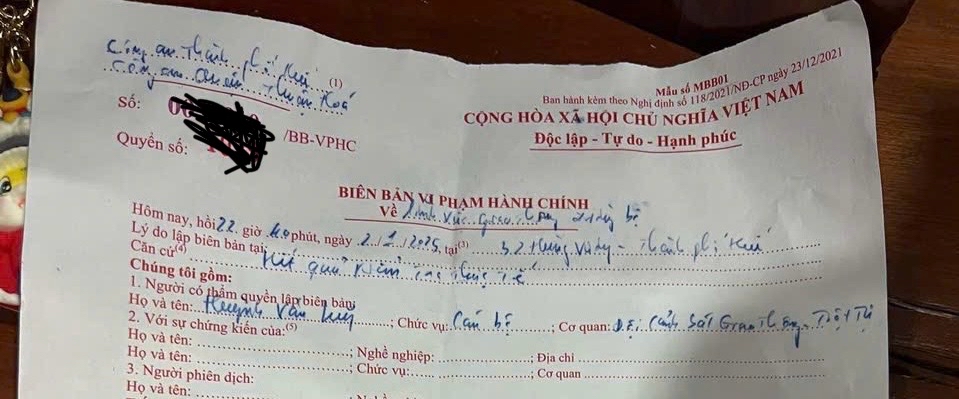 Công an Thành phố Huế (1)
Công an Quận Thuận Hoá
Số: /BB-VPHC
Quyển số:
Mẫu số MBB01
Ban hành kèm theo Nghị định số 118/2021/NĐ-CP ngày 23/12/2021
CỘNG HÒA XÃ HỘI CHỦ NGHĨA VIỆT NAM
Độc lập - Tự do - Hạnh phúc
BIÊN BẢN VI PHẠM HÀNH CHÍNH
Về Lĩnh vực Giao thông đường bộ
Hôm nay, hồi 22 giờ 40 phút, ngày 2/1/2025, tại(3) 52 Hùng Vương - Thành phố Huế
Lý do lập biên bản tại:
Căn cứ(4) Kết quả kiểm tra thực tế
Chúng tôi gồm:
1. Người có thẩm quyền lập biên bản:
Họ và tên: Huỳnh Văn; Chức vụ: Cán bộ; Cơ quan: Đội Cảnh Sát Giao thông - Trật Tự
2. Với sự chứng kiến của:(5)
Họ và tên: ; Nghề nghiệp: ; Địa chỉ
Họ và tên: ; Chức vụ: ; Cơ quan
3. Người phiên dịch:
Họ và tên: